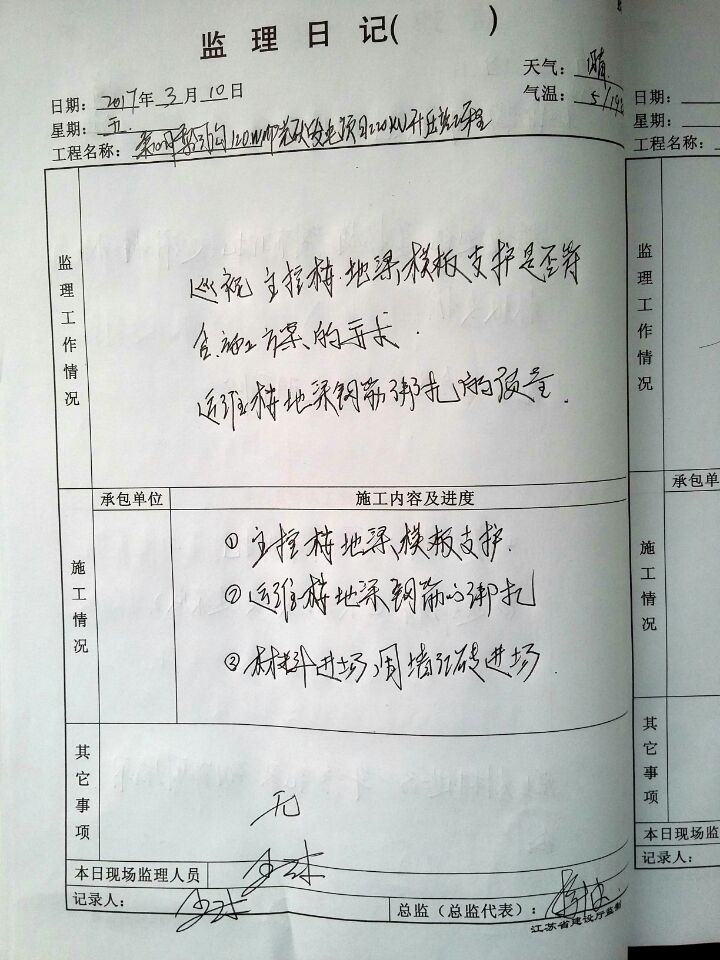 监理日记( )
天气：晴
日期：2017年3月10日
气温：5/19
星期：五.
工程名称： 120MWP光伏发电项目220kV升压站工程
监理工作情况
巡视主控楼地梁、模板支护是否符
合施工方案的要求.
运维楼地梁钢筋绑扎的质量.
承包单位 施工内容及进度
施工情况
①主控楼地梁、模板支护.
②运维楼地梁钢筋的绑扎
③材料进场,围墙红砖进场
其它事项
无
本日现场监理人员
记录人：
总监（总监代表）：
江苏省建设厅监制
日期：
星期：
工程名称：
监理工作情况
承包单
施工情况
其它事项
本日现场监
记录人：